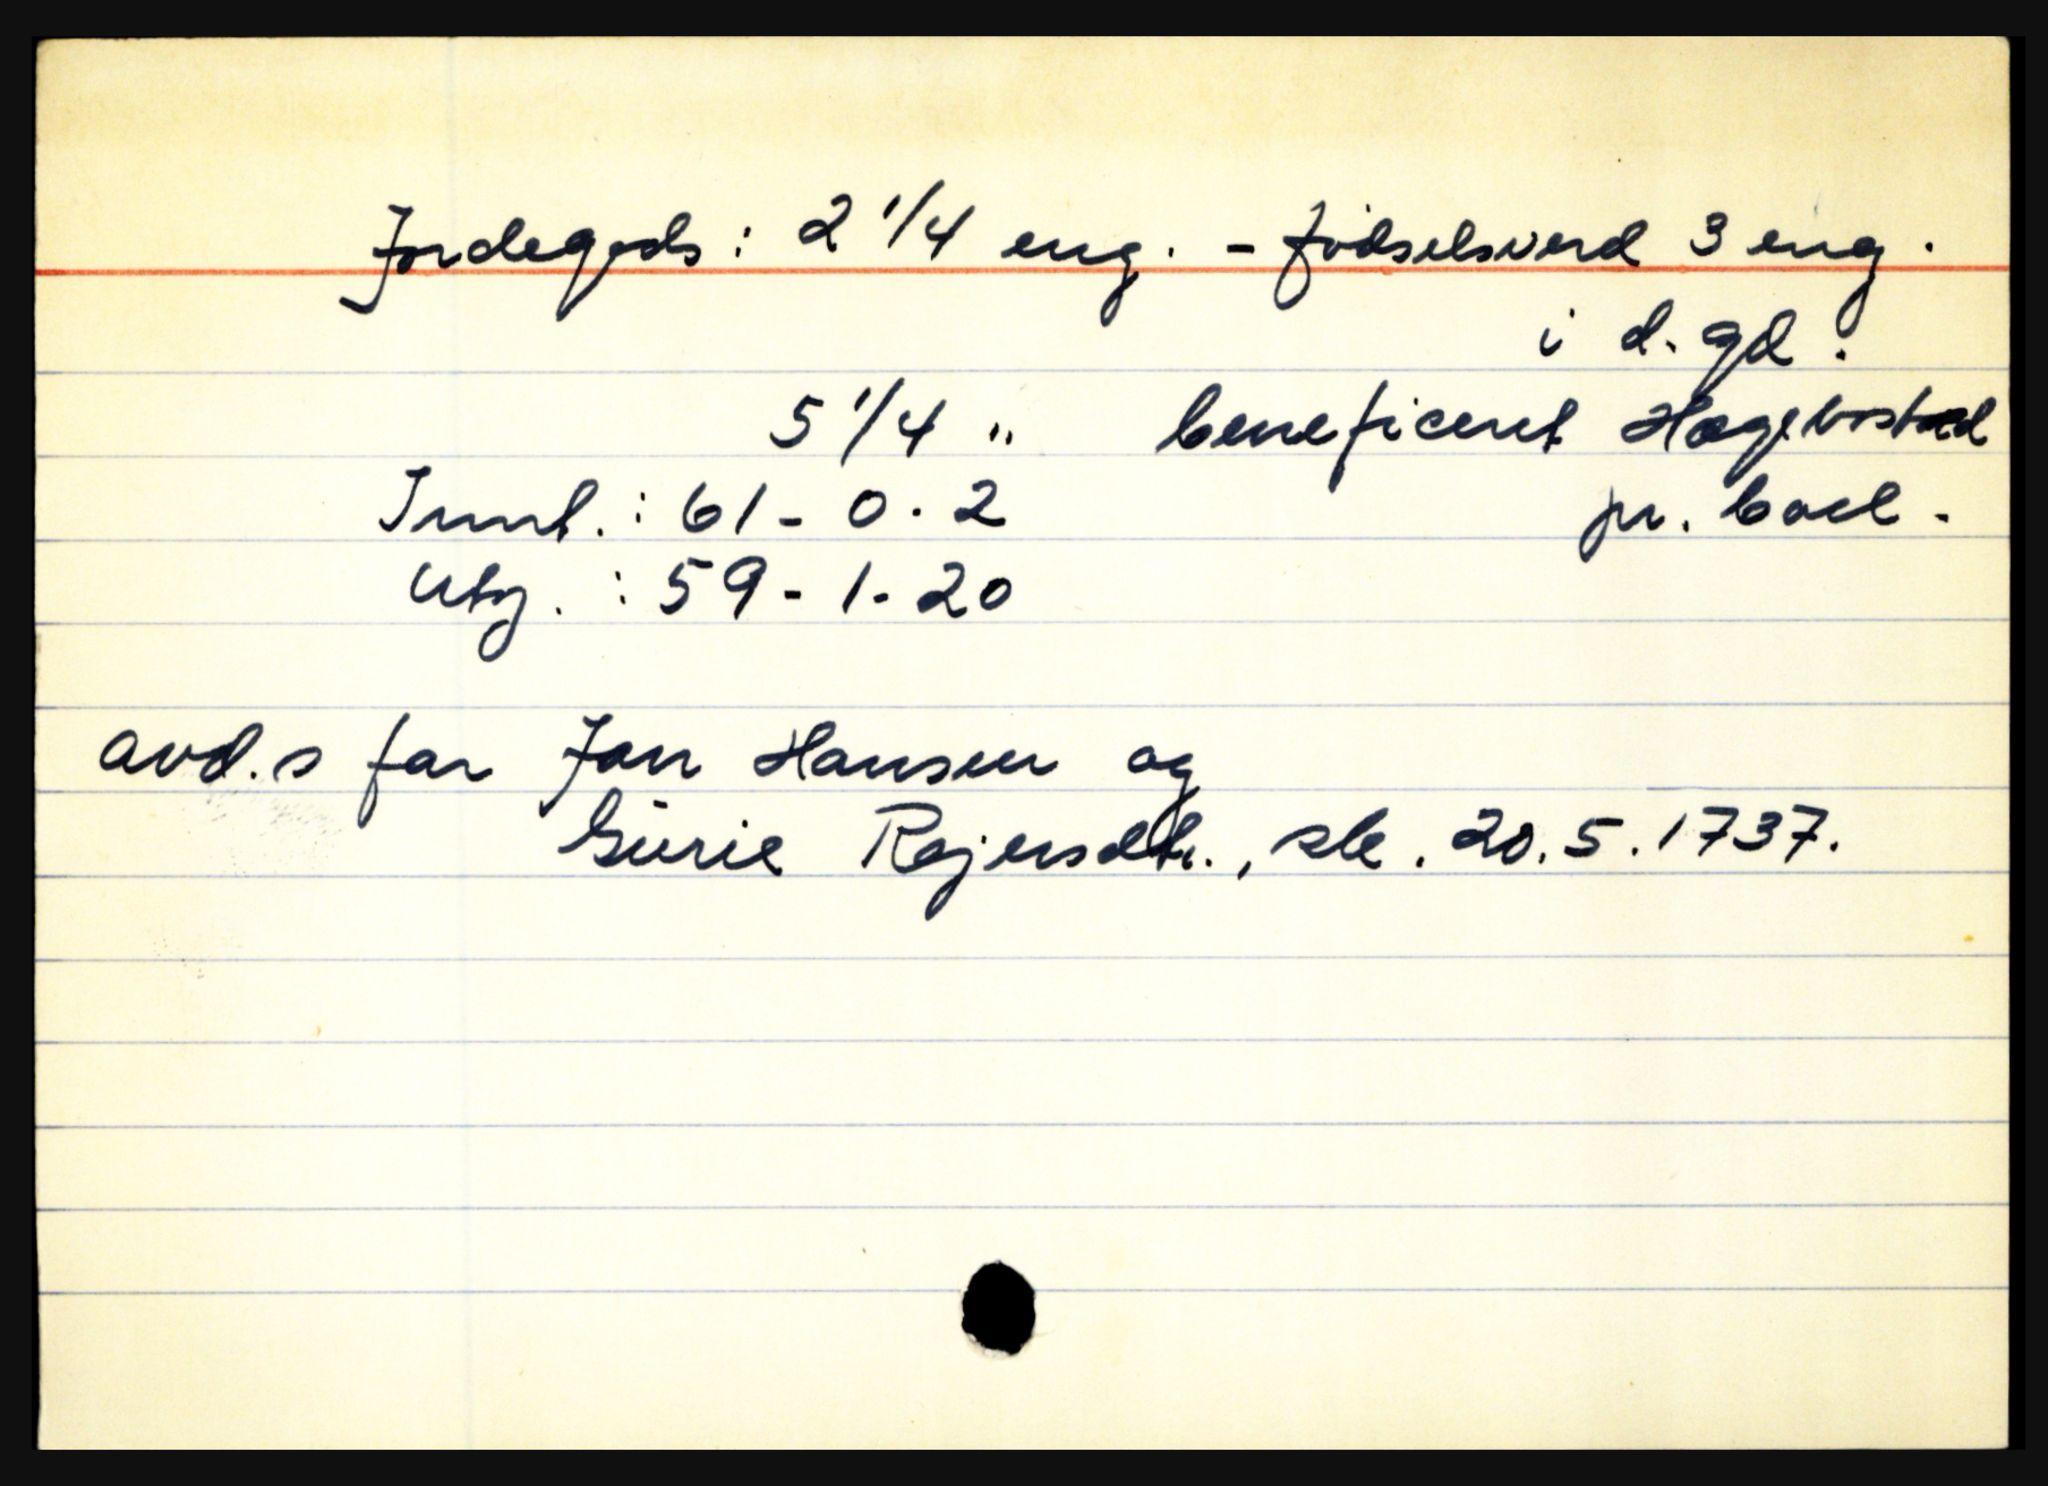 Jordegods: 2 1/4 eng. - fødselsverd 3 eng.
i d. gd.
5 1/4 " beneficeret Hægebostad
pr. boel.
Innt.: 61 - 0 - 2
Utg.: 59 - 1 - 20
avd.s far Jon Hansen og
Gürie Rejersdtr., ste. 20.5.1737.